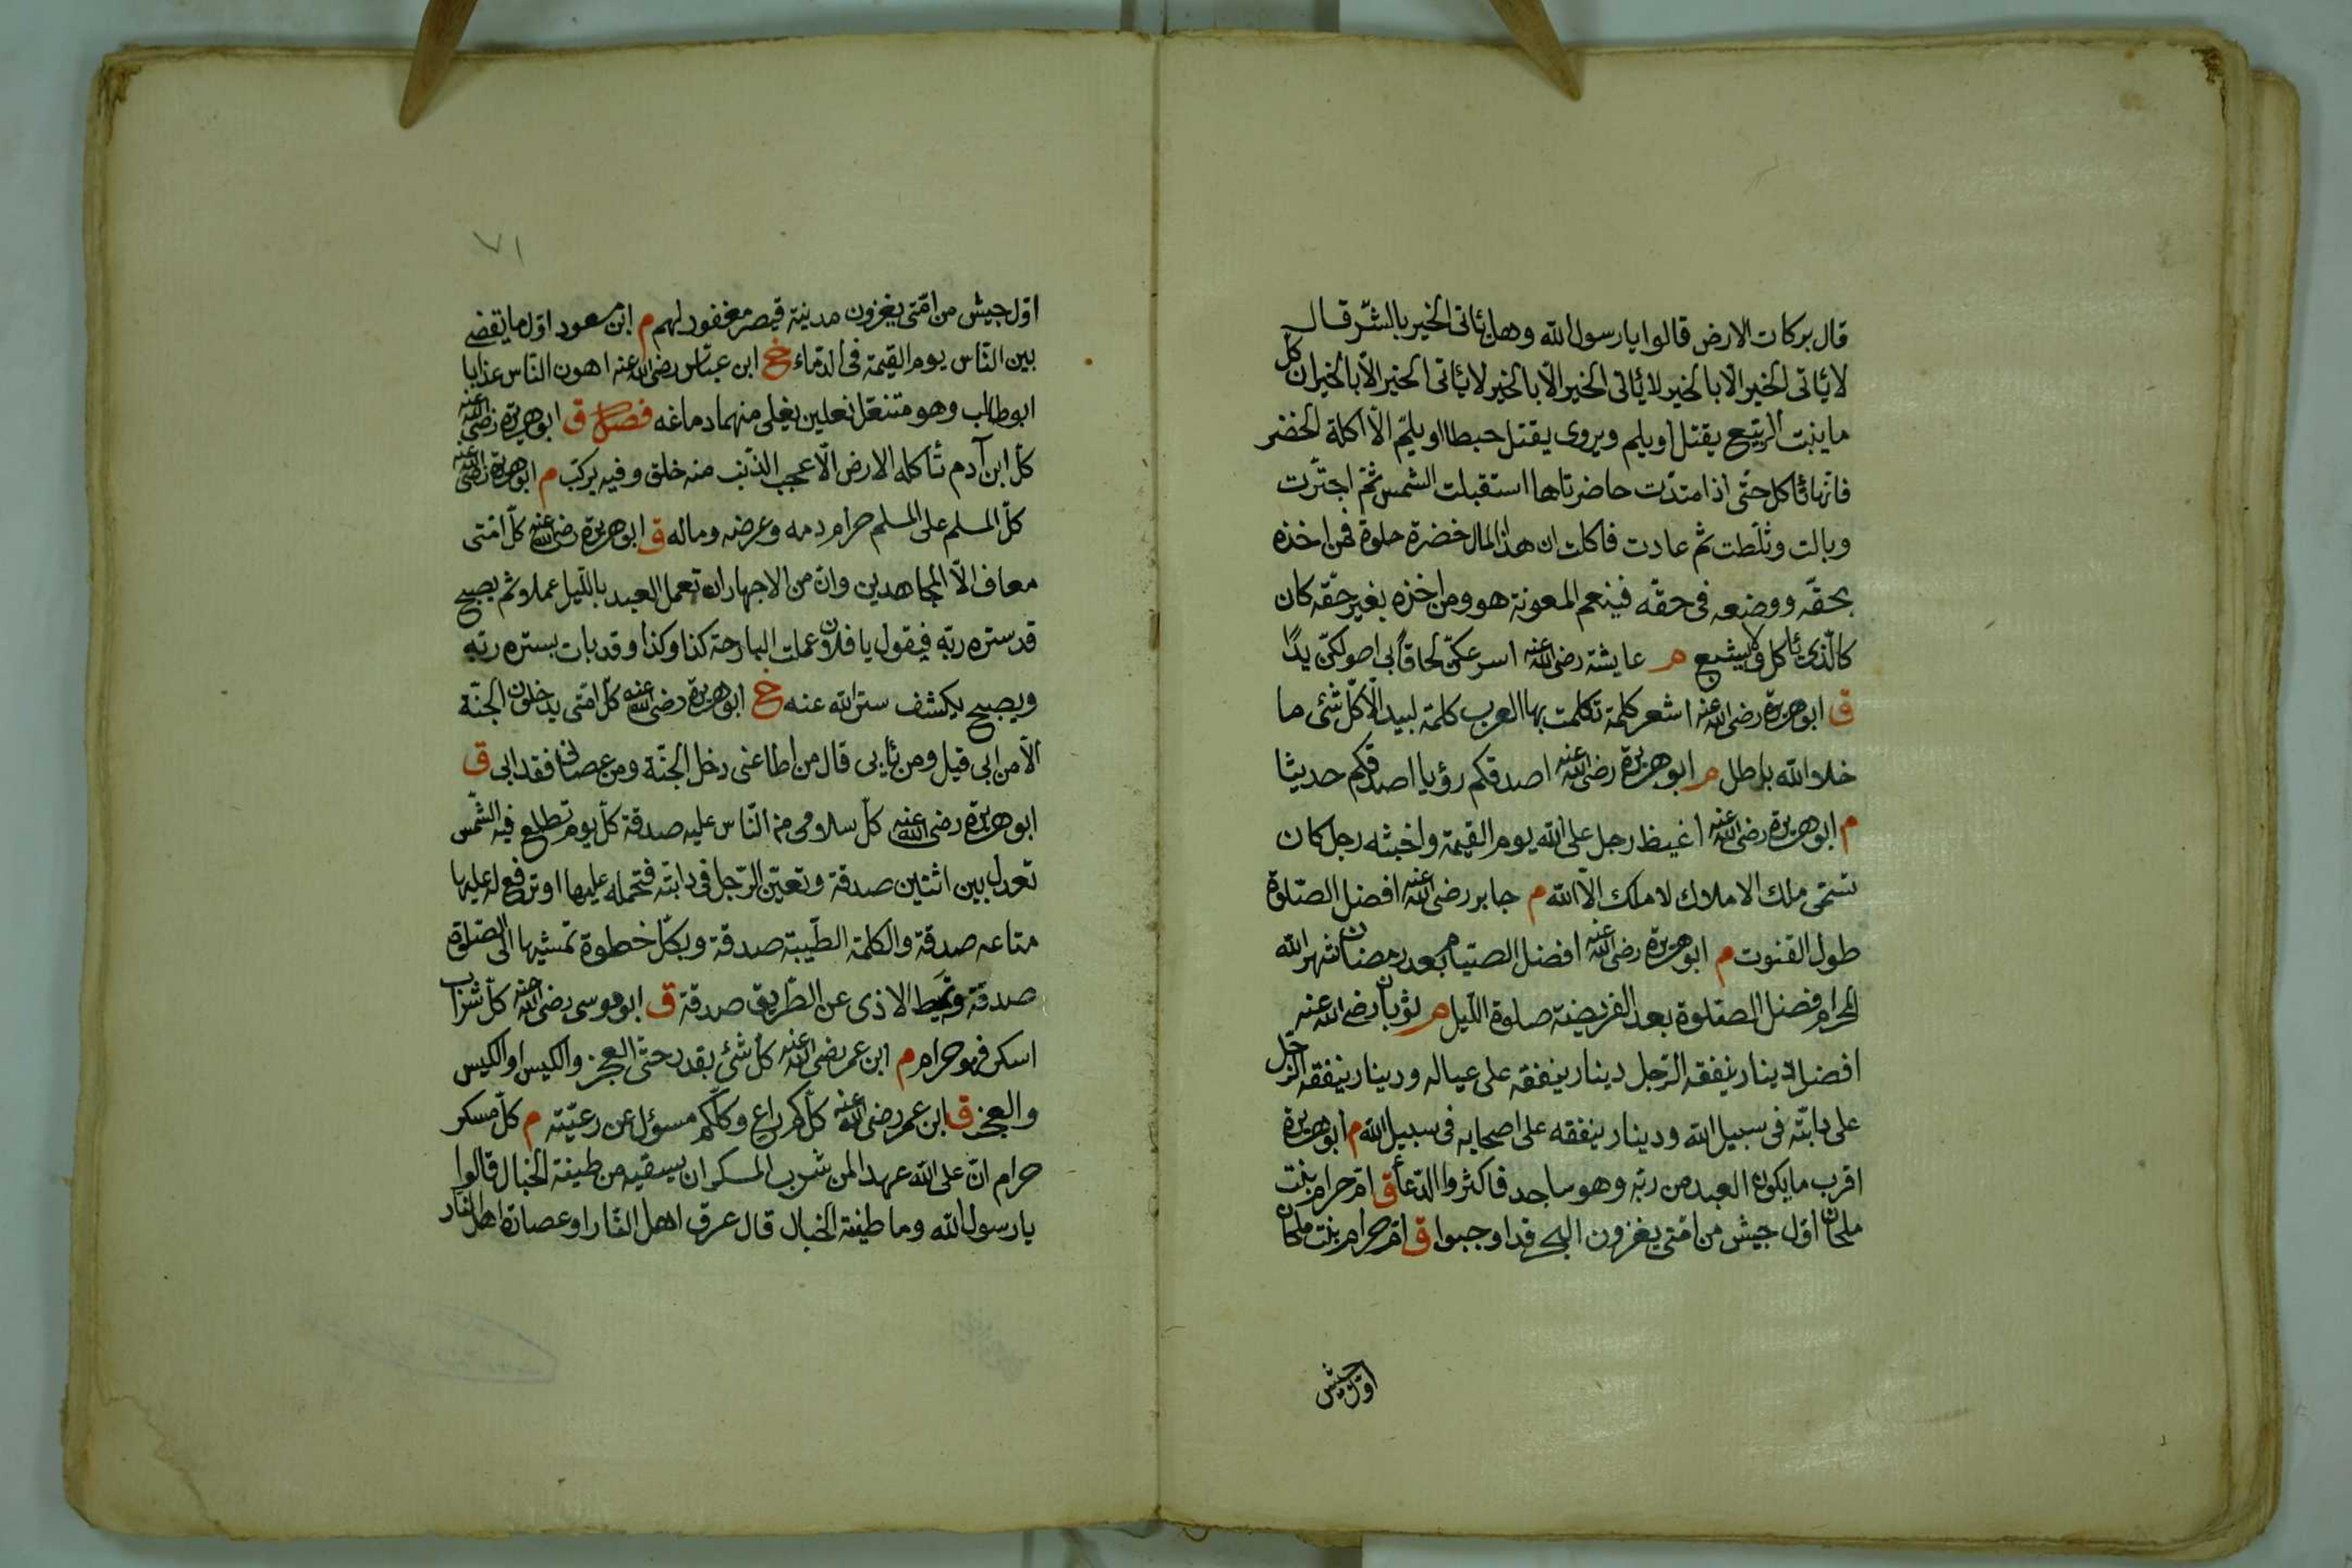 قال بركات الارض قالوا يا رسول الله وهل يأتى الخير بالشر قال
لا يأتى الخير الا بالخير لا يأتى الخير الا بالخير لا يأتى الخير الا بالخير ان كل
ما ينبت الربيع يقتل او يلم ويروى يقتل حبطا او يلم الا اكلة الخضر
فانها تأكل حتى اذا امتدت حاضرتاها استقبلت الشمس ثم اجترت
وبالت وثلطت ثم عادت فاكلت ان هذا المال خضرة حلوة فمن اخذه
بحقه ووضعه فى حقه فينعم المعونة هو ومن اخذه بغير حقه كان
كالذى يأكل ولا يشبع م عايشة رضى الله عنه اسرعكن لحاقا بى اصولكن يدا
ق ابو هريرة رضى الله عنه اشعر كلمة تكلمت بها العرب كلمة لبيد الا كل شئ ما
خلا الله باطل م ابو هريرة رضى الله عنه اصدقكم رؤيا اصدقكم حديثا
م ابو هريرة رضى الله عنه اغيظ رجل على الله يوم القيمة واخبثه رجل كان
تسمى ملك الاملاك لا ملك الا الله م جابر رضى الله عنه افضل الصلوة
طول القنوت م ابو هريرة رضى الله عنه افضل الصيام بعد رمضان شهر الله
الحرام فضل الصلوة بعد الفريضة صلوة الليل م ثوبان رضى الله عنه
افضل دينار ينفقه الرجل دينار ينفقه على عياله ودينار ينفقه الرجل
على دابته فى سبيل الله ودينار ينفقه على اصحابه فى سبيل الله م ابو هريرة
اقرب ما يكون العبد من ربه وهو ساجد فاكثروا الدعأ ق ام حرام بنت
ملحان اول جيش من امتى يغزون البحر قد اوجبوا ق ام حرام بنت ملحان
اول جيش
٧١
اول جيش من امتى يغزون مدينة قيصر مغفور لهم م ابن مسعود اول ما يقضى
بين الناس يوم القيمة فى الدماء خ ابن عباس رضى الله عنه اهون الناس عذابا
ابو طالب وهو متنعل نعلين يغلى منهما دماغه فصل ق ابو هريرة رضى الله عنه
كل ابن آدم تأكله الارض الا عجب الذنب منه خلق وفيه يركب م ابو هريرة رضى الله عنه
كل المسلم على المسلم حرام دمه وعرضه وماله ق ابو هريرة رضى الله عنه كل امتى
معاف الا المجاهدين وان من الاجهار ان تعمل العبد بالليل عملا وثم يصبح
قد ستره ربه فيقول يا فلان عملت البارحة كذا وكذا وقد بات بستره ربه
ويصبح يكشف ستر الله عنه خ ابو هريرة رضى الله عنه كل امتى يدخلون الجنة
الا من ابى قيل ومن يأبى قال من اطاعنى دخل الجنة ومن عصانى فقد ابى ق
ابو هريرة رضى الله عنه كل سلامى من الناس عليه صدقة كل يوم تطلع فيه الشمس
تعدل بين اثنين صدقة وتعين الرجل فى دابته فتحمله عليها او ترفع له عليها
متاعه صدقة والكلمة الطيبة صدقة وبكل خطوة تمشيها الى الصلوة
صدقة وتميط الاذى عن الطريق صدقة ق ابو موسى رضى الله عنه كل شراب
اسكر فهو حرام م ابن عمر رضى الله عنه كل شئ بقدر حتى العجز والكيس او الكيس
والعجز ق ابن عمر رضى الله عنه كلكم راع وكلكم مسؤل عن رعيته م كل مسكر
حرام ان على الله عهدا لمن شرب المسكر ان يسقيه من طينة الخبال قالوا
يا رسول الله وما طينة الخبال قال عرق اهل النار او عصارة اهل النار